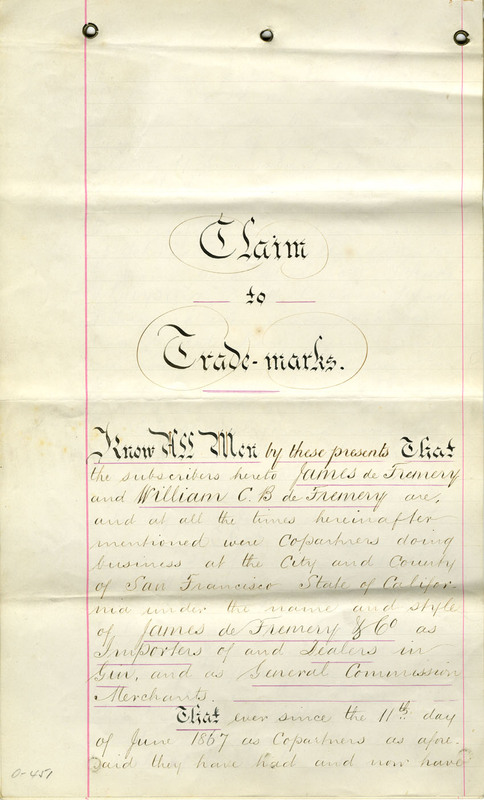 Claim
to
Trade-marks.
Know All Men by these presents That
the subscribers hereto James de Fremery
and William C. B de Fremery are,
and at all the times hereinafter
mentioned were Copartners doing
business at the City and County
of San Francisco State of Califor
nia under the name and style
of James de Fremery & Co as
Importers of and Dealers in
Gin, and as General Commission
Merchants.
That ever since the 11th day
of June 1867 as Copartners as afore-
said they have had and now have
O-451